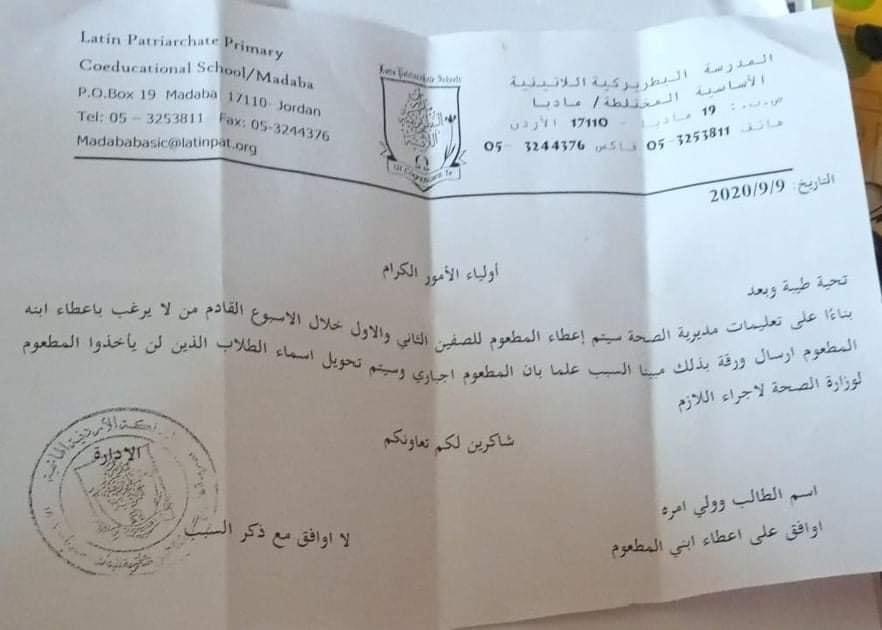 Latin Patriarchate Primary
Coeducational School/Madaba
P.O.Box 19 Madaba 17110- Jordan
Tel: 05 – 3253811 Fax: 05-3244376
Madababasic@latinpat.org
Latin Patriarchate Schools
المدرسة البطريركية اللاتينية
الأساسية المختلطة / مادبا
ص.ب.: 19 مادبا - 17110 الأردن
هاتف 05-3253811 فاكس 3244376 -05
التاريخ: 2020/9/9
أولياء الأمور الكرام
تحية طيبة وبعد
بناءًا على تعليمات مديرية الصحة سيتم إعطاء المطعوم للصفين الثاني والاول خلال الاسبوع القادم من لا يرغب باعطاء ابنه
المطعوم ارسال ورقة بذلك مبينا السبب علما بان المطعوم اجباري وسيتم تحويل اسماء الطلاب الذين لن يأخذوا المطعوم
لوزارة الصحة لاجراء اللازم
شاكرين لكم تعاونكم
الإدارة
اسم الطالب وولي امره
اوافق على اعطاء ابني المطعوم
لا اوافق مع ذكر السبب